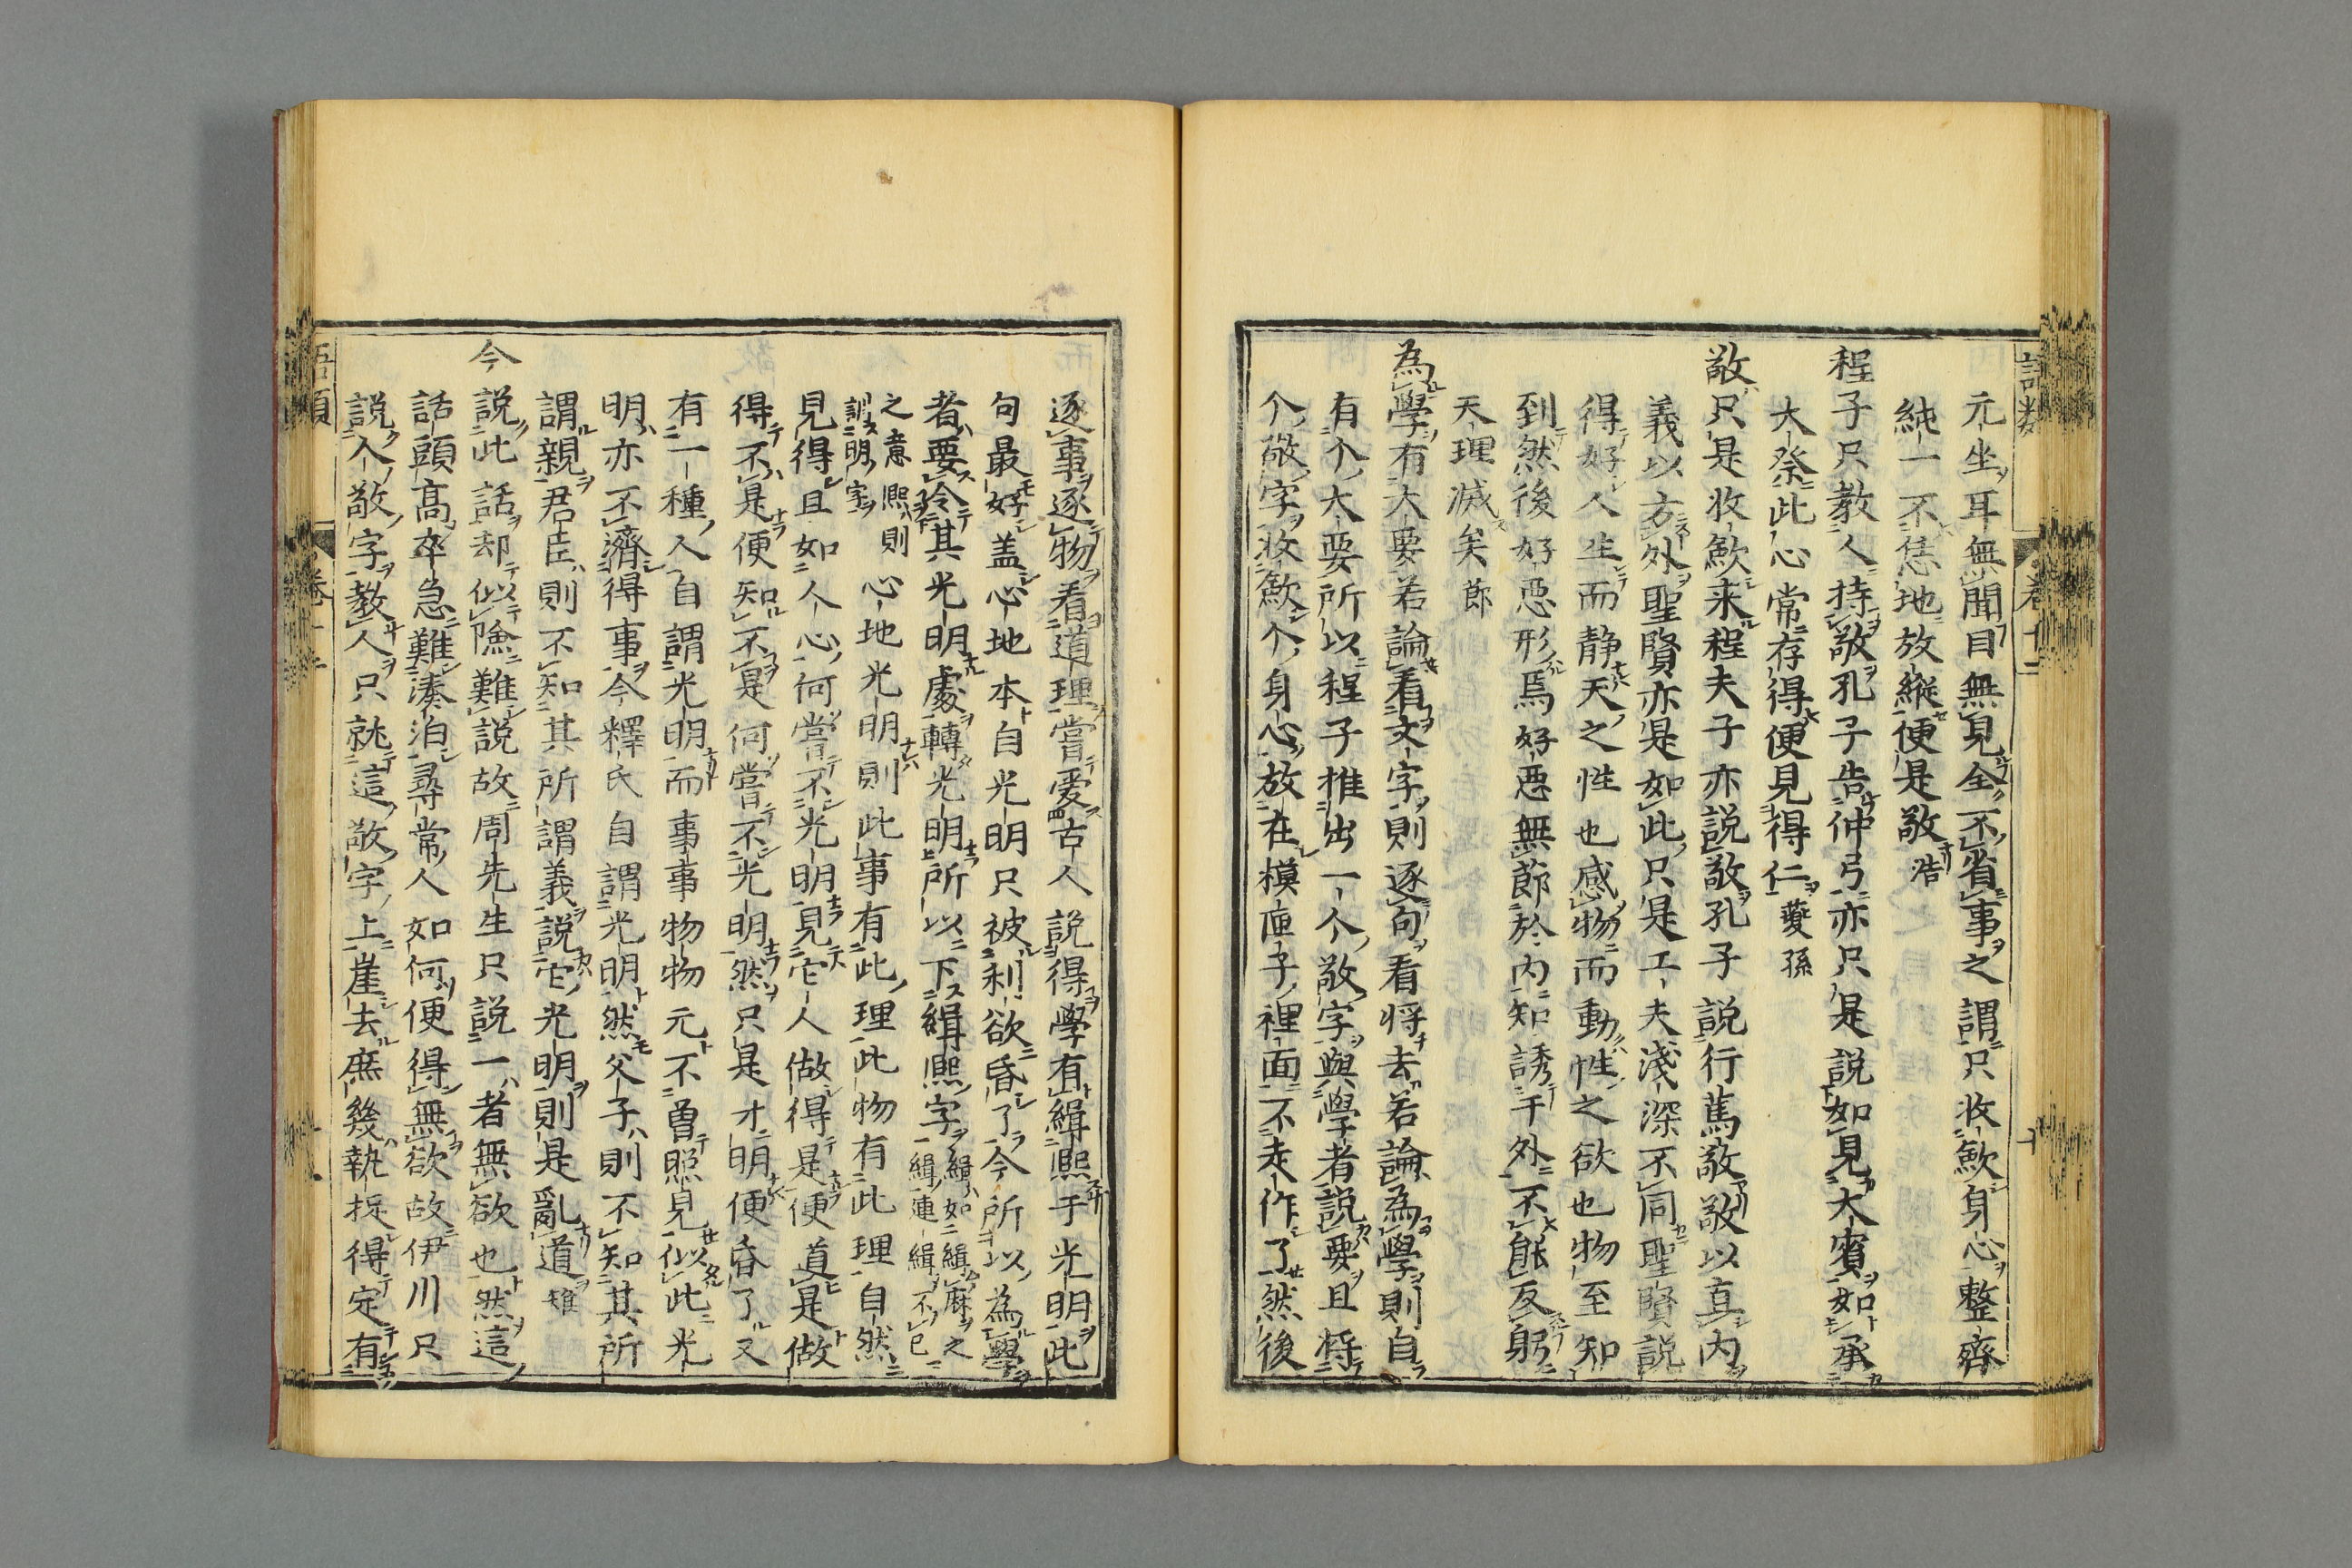 兀坐耳無聞目無見全不省事之謂只收斂身心整齊
純一不恁地放縱便是敬浩
程子只教人持敬孔子告仲弓亦只是說如見大賓如承
大祭此心常存得便見得仁䕫孫
敬只是收斂來程夫子亦說敬孔子說行篤敬敬以直內
義以方外聖賢亦是如此只是工夫淺深不同聖賢說
得好人生而静天之性也感物而動性之欲也物至知
到然後好惡形焉好惡無節於內知誘于外不能反躬
天理滅矣節
為學有大要若論看文字則逐句看將去若論為學則自
有个大要所以程子推出一个敬字與學者說要且將
个敬字收斂个身心放在模匣子裡面不走作了然後
逐事逐物看道理嘗愛古人說得學有緝熙于光明此
句最好盖心地本自光明只被利欲昏了今所以為學
者要令其光明處轉光明所以下緝熙字緝如緝麻之緝連緝不已
之意熙則訓明字心地光明則此事有此理此物有此理自然
見得且如人心何嘗不光明見它人做得是便道是做
得不是便知不是何嘗不光明然只是才明便昏了又
有一種人自謂光明而事事物物元不曾照見似此光
明亦不濟得事今釋氏自謂光明然父子則不知其所
謂親君臣則不知其所謂義說它光明則是亂道雉
今說此話却似險難說故周先生只說一者無欲也然這
話頭高卒急難湊泊尋常人如何便得無欲故伊川只
說个敬字教人只就這敬字上崖去庶幾執捉得定有
語類
卷十二